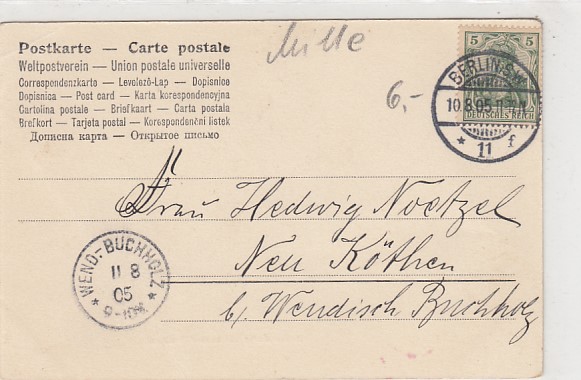 Postkarte — Carte postale
Weltpostverein — Union postale universelle
Correspondenzkarte — Levelező-Lap — Dopisnice
Dopisnica — Post card — Karta korespondencyjna
Cartolina postale — Briefkaart — Carta postala
Brefkort — Tarjeta postal — Korespondenčni listek
Дописна карта — Открытое письмо
Mitte
6,-
5 5
DEUTSCHES REICH
BERLIN S.W.
10.8.05
* 11 f
Frau Hedwig Noetzel
Neu Köthen
b/ Wendisch Buchholz
WEND.-BUCHHOLZ
11 8
05